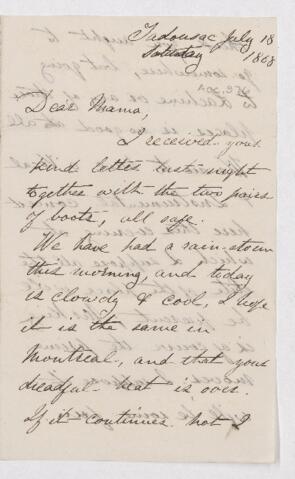 Tadousac July 18
Saturday 1868
Dear Mama,
I received your
kind letter last night
together with the two pairs
of boots, all safe.
We have had a rain-storm
this morning, and today
is clowdy & cool, I hope
it is the same in
Montreal, and that your
dreadful heat is over.
If it continues hot I